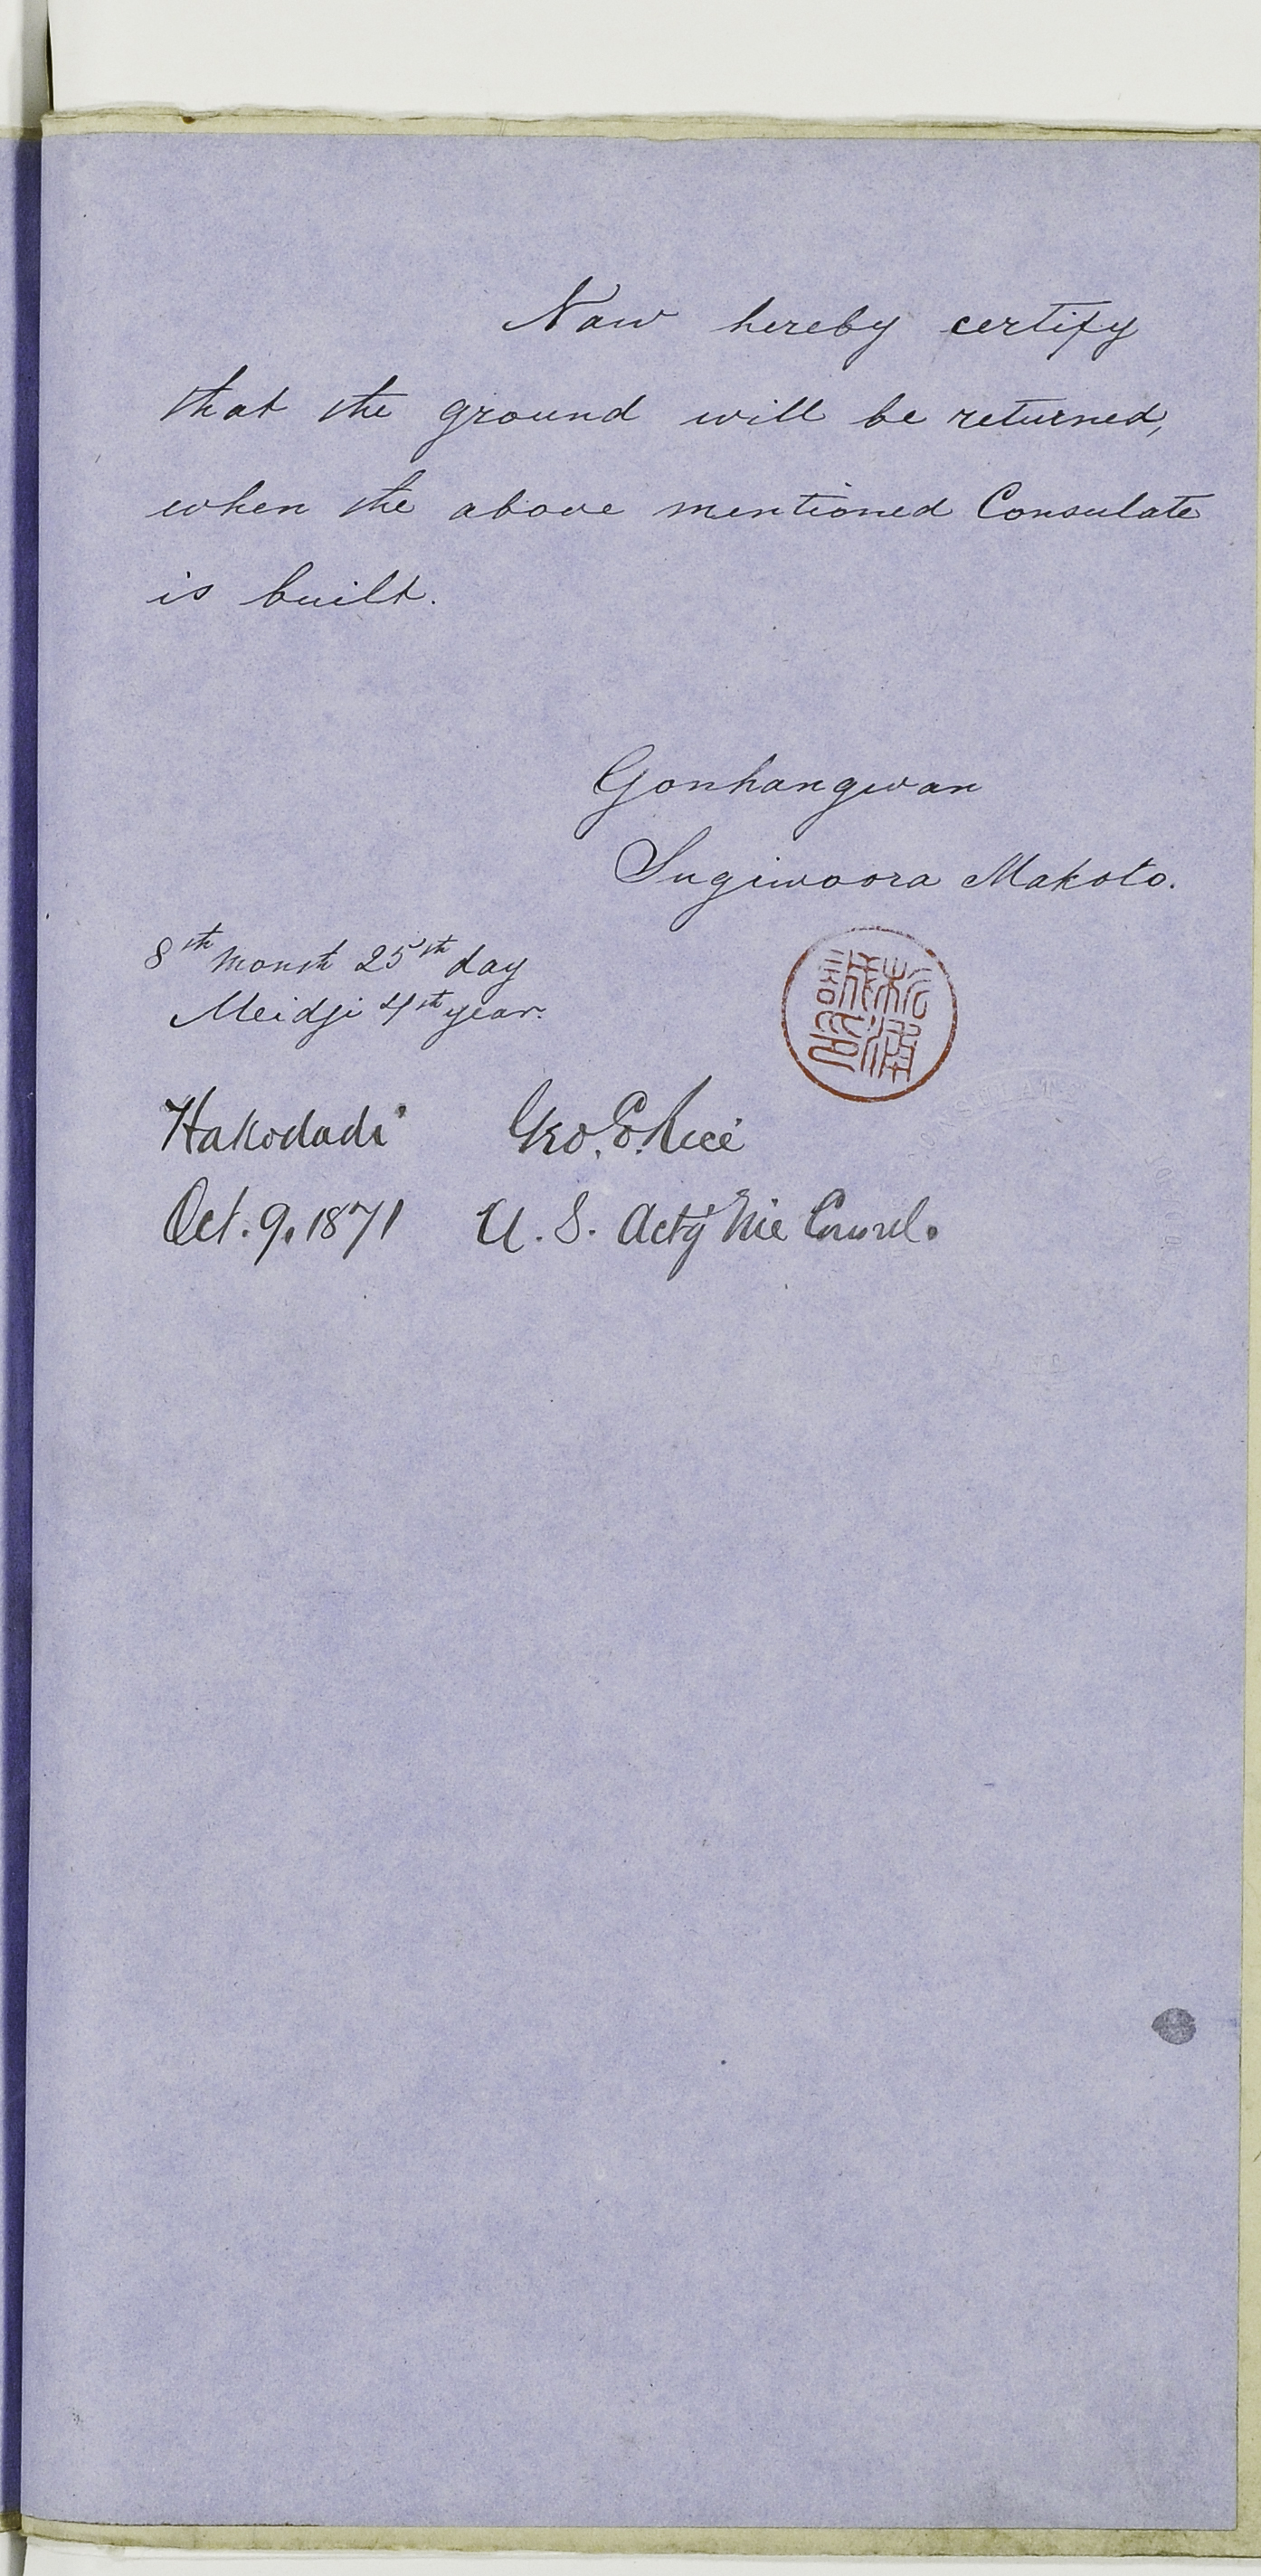 Now hereby certify
that the ground will be returned,
when the above mentioned Consulate
is built.
Gonhangwan
Sugiwoora Makoto.
8th month 25th day
Meidji 4th year.
杉浦
誠印
Hakodadi Geo. E. Rice
Oct. 9. 1871 U. S. Actg Vice Consul.